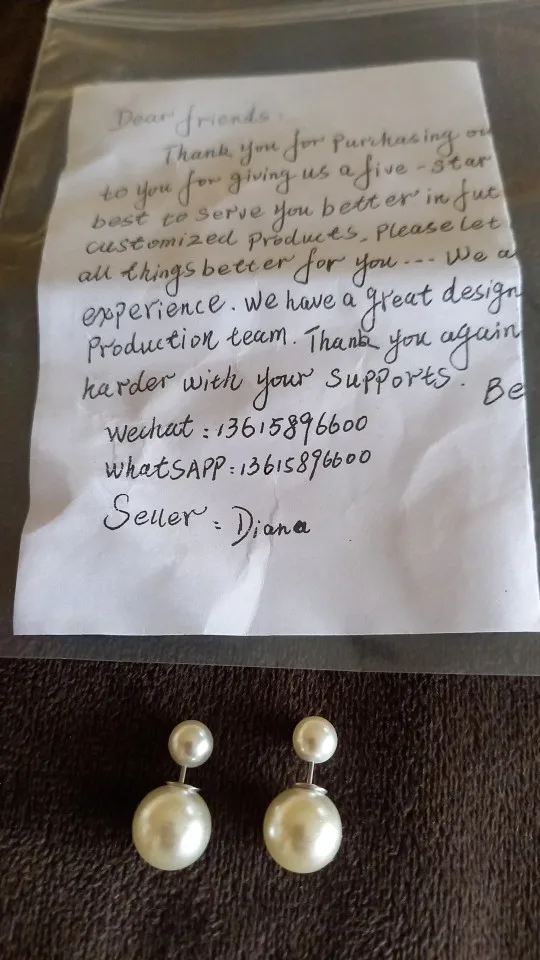 Dear friends:
Thank you for purchasing ou
to you for giving us a five-star
best to serve you better in fut
customized products. Please let
all things better for you... We a
experience. We have a great design
Production team. Thank you again
harder with your supports. Be
wechat: 13615896600
WhatSAPP: 13615896600
Seller: Diana